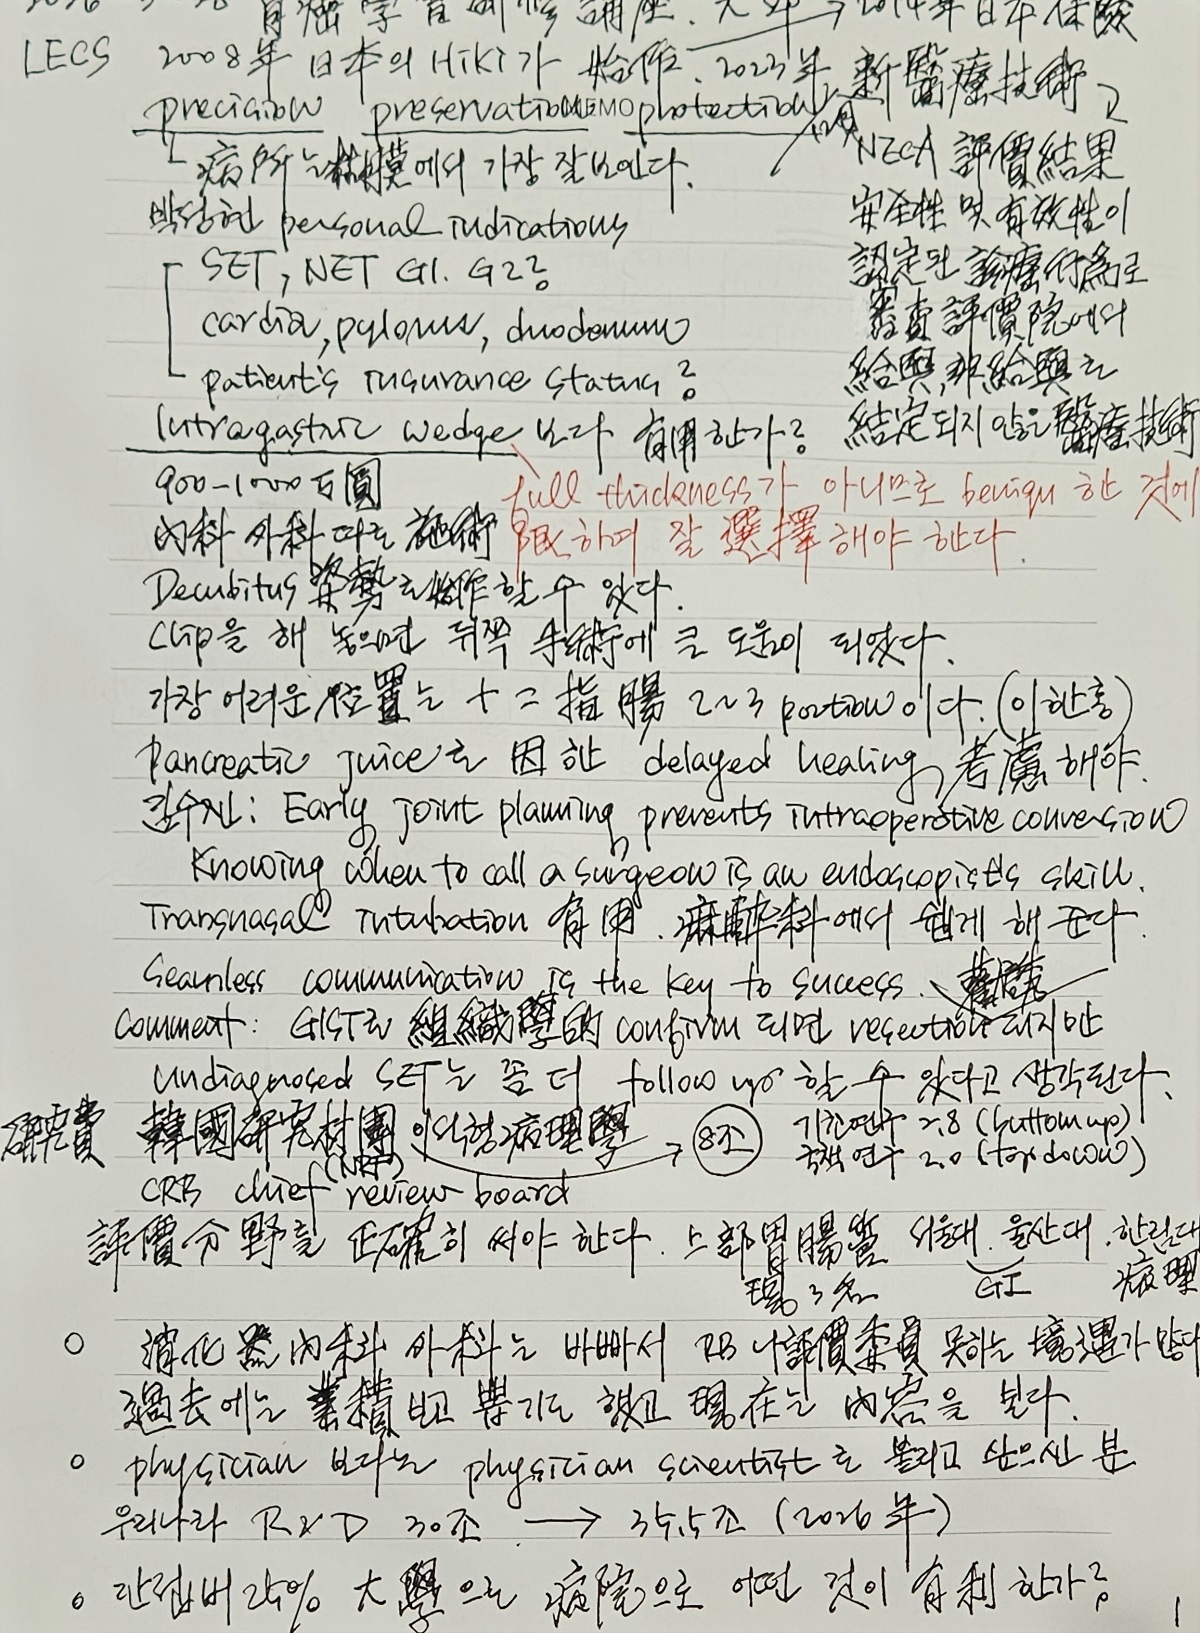 胃癌學會 硏修講座.
→ 2014年 日本 保險
LECS 2008年 日本의 Hiki가 始作. 2023年 新醫療技術
precision preservation MEMO protection 12月
NECA 評價結果
病所는 粘膜에서 가장 잘 보인다.
安全性 및 有效性이
박성현 personal indications
認定된 診療行為로
SET, NET G1. G2?
審査評價院에서
cardia, pylorus, duodenum
給與, 非給與로
patient's insurance status?
結定되지 않은 醫療技術
Intragastric wedge 보다 有用한가?
900-1000万圓
full thickness가 아니므로 benign 한 것에
限하여 잘 選擇해야 한다.
內科 外科 따로 施術
Decubitus 姿勢로 始作할 수 있다.
Clip을 해 놓으면 뒤쪽 手術에 큰 도움이 되었다.
가장 어려운 位置는 十二指腸 2~3 portion이다. (이한홍)
Pancreatic juice로 因한 delayed healing, 考慮해야.
김수진: Early joint planning prevents intraoperative conversion
Knowing when to call a surgeon is an endoscopist's skill.
Transnasal intubation 有用. 麻醉科에서 쉽게 해 준다.
Seamless communication is the key to success.
Comment: GIST로 組織學的 confirm 되면 resection 되지만
undiagnosed SET는 좀 더 follow up 할 수 있다고 생각된다.
硏究費 韓國硏究財團 (NRF) 病理學 → 8조
기초연구 2.8 (buttom up)
국책연구 2.0 (top down)
CRB chief review board
評價分野를 正確히 써야 한다. 上部胃腸管 서울대. 울산대. 한림대
現 3名 GI 病理
○ 消化器內科 外科는 바빠서 RB나 評價委員 못하는 境遇가 많다
過去에는 業積 보고 뽑기도 했고 現在는 內容을 본다.
○ physician 보다는 physician scientist로 불리고 싶으신 분
우리나라 R&D 30조 → 35.5조 (2026年)
○ 간접비 25% 大學으로 病院으로 어떤 것이 有利한가?
1